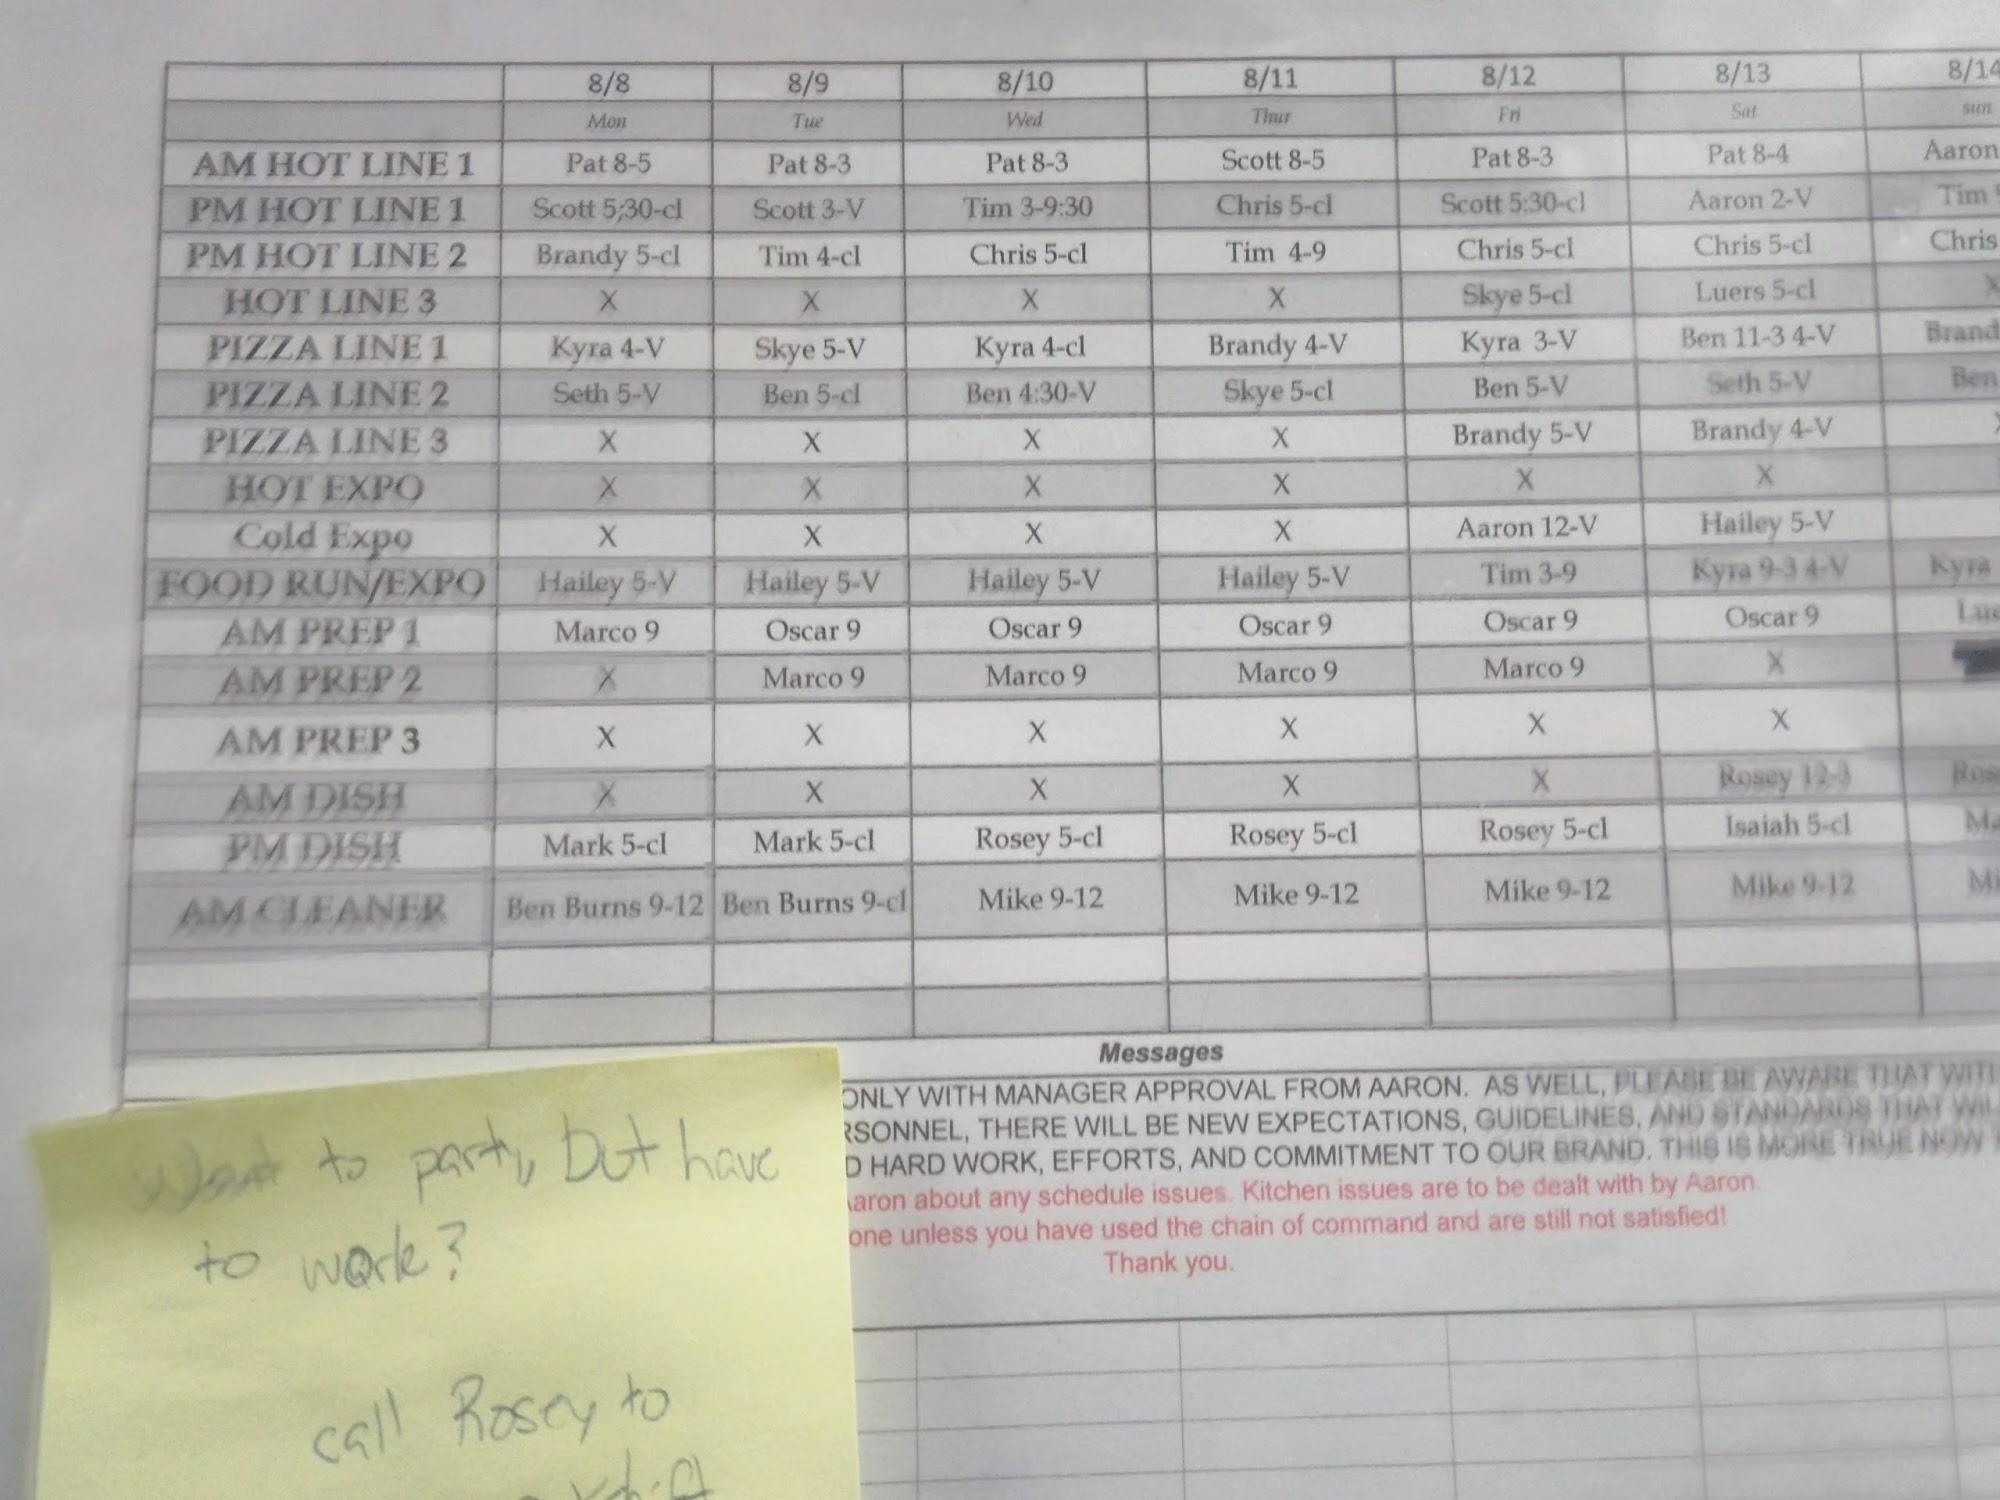 8/8 8/9 8/10 8/11 8/12 8/13 8/14
Mon Tue Wed Thur Fri Sat sun
AM HOT LINE 1 Pat 8-5 Pat 8-3 Pat 8-3 Scott 8-5 Pat 8-3 Pat 8-4 Aaron
PM HOT LINE 1 Scott 5;30-cl Scott 3-V Tim 3-9:30 Chris 5-cl Scott 5:30-cl Aaron 2-V Tim
PM HOT LINE 2 Brandy 5-cl Tim 4-cl Chris 5-cl Tim 4-9 Chris 5-cl Chris 5-cl Chris
HOT LINE 3 X X X X Skye 5-cl Luers 5-cl X
PIZZA LINE 1 Kyra 4-V Skye 5-V Kyra 4-cl Brandy 4-V Kyra 3-V Ben 11-3 4-V Brand
PIZZA LINE 2 Seth 5-V Ben 5-cl Ben 4:30-V Skye 5-cl Ben 5-V Seth 5-V Ben
PIZZA LINE 3 X X X X Brandy 5-V Brandy 4-V
HOT EXPO X X X X X X
Cold Expo X X X X Aaron 12-V Hailey 5-V
FOOD RUN/EXPO Hailey 5-V Hailey 5-V Hailey 5-V Hailey 5-V Tim 3-9 Kyra 9-3 4-V Kyra
AM PREP 1 Marco 9 Oscar 9 Oscar 9 Oscar 9 Oscar 9 Oscar 9 Lue
AM PREP 2 X Marco 9 Marco 9 Marco 9 Marco 9 X
AM PREP 3 X X X X X X
AM DISH X X X X X Rosey 12-3 Ros
PM DISH Mark 5-cl Mark 5-cl Rosey 5-cl Rosey 5-cl Rosey 5-cl Isaiah 5-cl Ma
AM CLEANER Ben Burns 9-12 Ben Burns 9-cl Mike 9-12 Mike 9-12 Mike 9-12 Mike 9-12 Mi
Messages
ONLY WITH MANAGER APPROVAL FROM AARON. AS WELL, PLEASE BE AWARE THAT WITH
RSONNEL, THERE WILL BE NEW EXPECTATIONS, GUIDELINES, AND STANDARDS THAT WIL
D HARD WORK, EFFORTS, AND COMMITMENT TO OUR BRAND. THIS IS MORE TRUE NOW
aron about any schedule issues. Kitchen issues are to be dealt with by Aaron.
one unless you have used the chain of command and are still not satisfied!
Thank you.
Want to party, but have
to work?
call Rosey to
shift